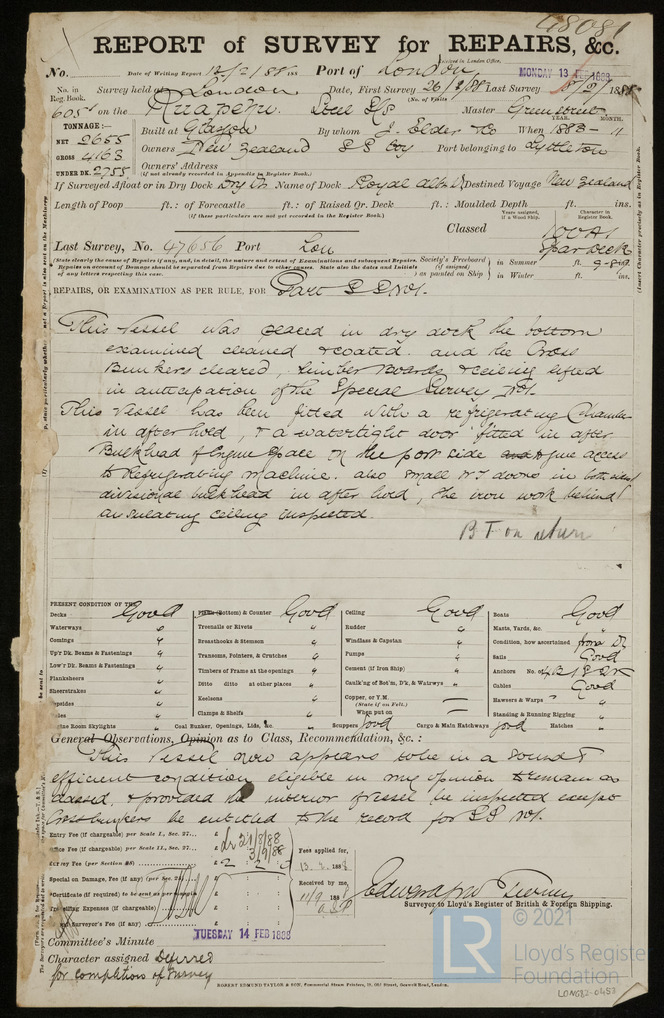 48081
REPORT of SURVEY for REPAIRS, &c.
No. Date of Writing Report 12/2/88 188 Port of London Received in London Office. MONDAY 13 FEB 1888
No. in Reg. Book. Survey held at London Date, First Survey 26/2/88 Last Survey 8/2/ 1888
(No. of Visits
605 on the Ruapehu Steel S/S Master Greenstreet
TONNAGE:— YEAR. MONTH.
NET 2655 Built at Glasgow By whom J. Elder & Co When 1883 - 11
GROSS 4163 Owners New Zealand S S Coy Port belonging to Lyttleton
UNDER DK. 2755 Owners' Address
(if not already recorded in Appendix to Register Book.)
If Surveyed Afloat or in Dry Dock Dry Dk Name of Dock Royal Albt Destined Voyage New Zealand
Length of Poop ft.: of Forecastle ft.: of Raised Qr. Deck ft.: Moulded Depth ft. ins.
(If these particulars are not yet recorded in the Register Book.)
Years assigned, if a Wood Ship. Character in Register Book.
Classed 100A1
Last Survey, No. 47656 Port Lon Spar Deck
(State clearly the cause of Repairs if any, and, in detail, the nature and extent of Examinations and subsequent Repairs.
Repairs on account of Damage should be separated from Repairs due to other causes. State also the dates and Initials
of any letters respecting this case.
Society's Freeboard (if assigned) as painted on Ship
in Summer ft.
in Winter ft. ins.
REPAIRS, OR EXAMINATION AS PER RULE, FOR Part S S No1.
This Vessel was placed in dry dock the bottom
examined cleaned & coated. and the Cross
Bunkers cleared, limber boards & ceiling lifted
in anticipation of the Special Survey No1.
This Vessel has been fitted with a refrigerating Chamber
in after hold, & a watertight door fitted in after
Bulkhead of Engine Space on the port side to give access
to Refrigerating machine. also small W T doors in both sides of
divisional bulkhead in after hold, the iron work behind
insulating ceiling inspected.
B T on return
PRESENT CONDITION OF THE
Decks Good Planks (Bottom) & Counter Good Ceiling Good Boats Good
Waterways " Treenails or Rivets " Rudder " Masts, Yards, &c. "
Comings " Breasthooks & Stemson " Windlass & Capstan " Condition, how ascertained from Dk
Up'r Dk. Beams & Fastenings " Transoms, Pointers, & Crutches " Pumps " Sails Good
Low'r Dk. Beams & Fastenings " Timbers of Frame at the openings " Cement (if Iron Ship) " Anchors No. of
Planksheers " Ditto ditto at other places " Caulk'ng of Bot'm, D'k, & Watrwys " Cables Good
Sheerstrakes " Keelsons " Copper, or Y.M. (State if on Felt.) Hawsers & Warps "
Topsides " Clamps & Shelfs " When put on Standing & Running Rigging "
Engine Room Skylights " Coal Bunker, Openings, Lids, &c. " Scuppers Good Cargo & Main Hatchways Good Hatches "
General Observations, Opinion as to Class, Recommendation, &c.:
This Vessel now appears to be in a sound &
efficient condition eligible in my opinion to remain as
classed, & provided the interior of vessel be inspected except
Cross bunkers be entitled to the record for SS No1.
Entry Fee (if chargeable) per Scale I., Sec. 27... £ 21/8/88
Office Fee (if chargeable) per Scale II., Sec. 27... £ 3/9/88
Survey Fee (per Section 28) £ 2 2 0
Special on Damage, Fee (if any) (per Sec. 28)... £
Certificate (if required) to be sent as per margin
Travelling Expenses (if chargeable) £
Surveyor's Fee (if any) £
Fees applied for,
13. 2. 1888
Received by me,
11/9 1888
Surveyor to Lloyd's Register of British & Foreign Shipping.
Committee's Minute TUESDAY 14 FEB 1888
Character assigned Deferred
for completion of survey
ROBERT EDMUND TAYLOR & SON, Commercial Steam Printers, 19, Old Street, Goswell Road, London.
LR
© 2021
Lloyd's Register
Foundation
LON682-0453